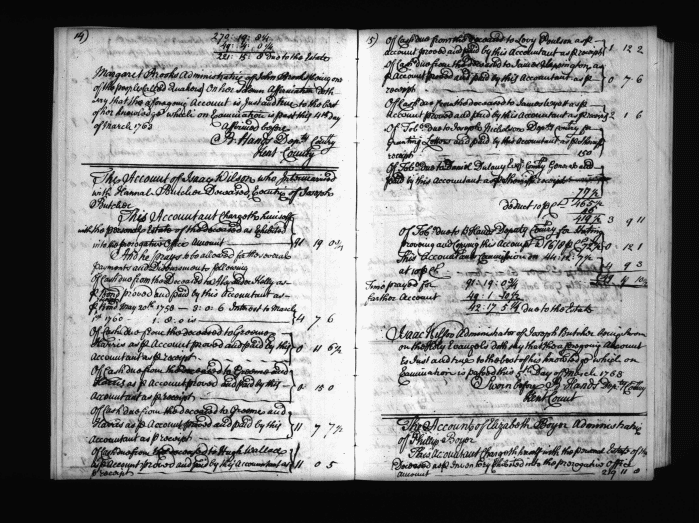 14)
221: 15: 8 due to the Estate
Margaret Brooks Administratrix of John Brooks being one
of the people called Quakers On her Solemn Affirmation doth
say that the aforegoing Account is Just and true to the best
of her knowledge which on Examination is past this 4th day
of March 1763
Affirmed before
Hands Depty Com'ry
Kent County
The Account of Isaac Wilson who Intermarried
with Hannah Butcher Deceased, Executrix of Joseph
Butcher
This Accountant Chargeth himself
with the personal Estate of the deceased as Exhibited
into the prerogative Office Amount 91 19
And he prays to be allowed for the several
payments and Disbursements following
Of Cash due from the deceased to Alexander Kelly as
p Bond proved and paid by this Accountant as
p Bond May 20th 1758 - 3: 0: 6 Interest to March
1st 1760 - 1: 8: 0 is 4 7 6
Of Cash due from the deceased to Greeme
Harris as p Account proved and paid by this
Accountant as p receipt 0 11
Of Cash due from the deceased to Greeme and
Harris as p Account proved and paid by this
Accountant as p receipt 0 15 0
Of Cash due from the deceased to Greeme and
Harris as p Account proved and paid by this
Accountant as p receipt 11 7
Of Cash due from the deceased to Hugh Wallace
as p Account proved and paid by this Accountant as
p receipt 11 0 5
15)
Of Cash due from the deceased to Levy Poulson as p
account proved and paid by this Accountant as p receipt 1 12 2
Of Cash due from the deceased to James
p Account proved and paid by this Accountant as p
receipt 0 7 6
Of Cash due from the deceased to James as p
Account proved and paid by this Accountant as p receipt 2 1 6
Of Tob° due to Joseph Nicholson Depty Com'ry for
Granting Letters and paid by this Accountant as p
receipt 150
Of Tob° due to Daniel Dulany Esqr Com'ry General and
paid by this Accountant as p receipt
deduct 10 p Ct
3 9 11
Of Tob° due to Hands Deputy Com'ry for Stating
proving and copying this Account 0 12 1
This Accountants Commission on
at 10 p Ct 4 9 3
Time prayed for
farther Account
42: 17: due to the Estate
Isaac Wilson Administrator of Joseph Butcher being Sworn
on the Holy Evangels doth say that the aforegoing Account
is Just and true to the best of his knowledge which on
Examination is passed this 5th day of March 1763
Sworn before Hands Depty Com'ry
Kent Count
The Account of Elizabeth Boyer Administratrix
of Phillip Boyer
This Accountant Chargeth herself with the personal Estate of the
Deceased as p Inventory Exhibited into the prerogative Office
amount 219 11 0